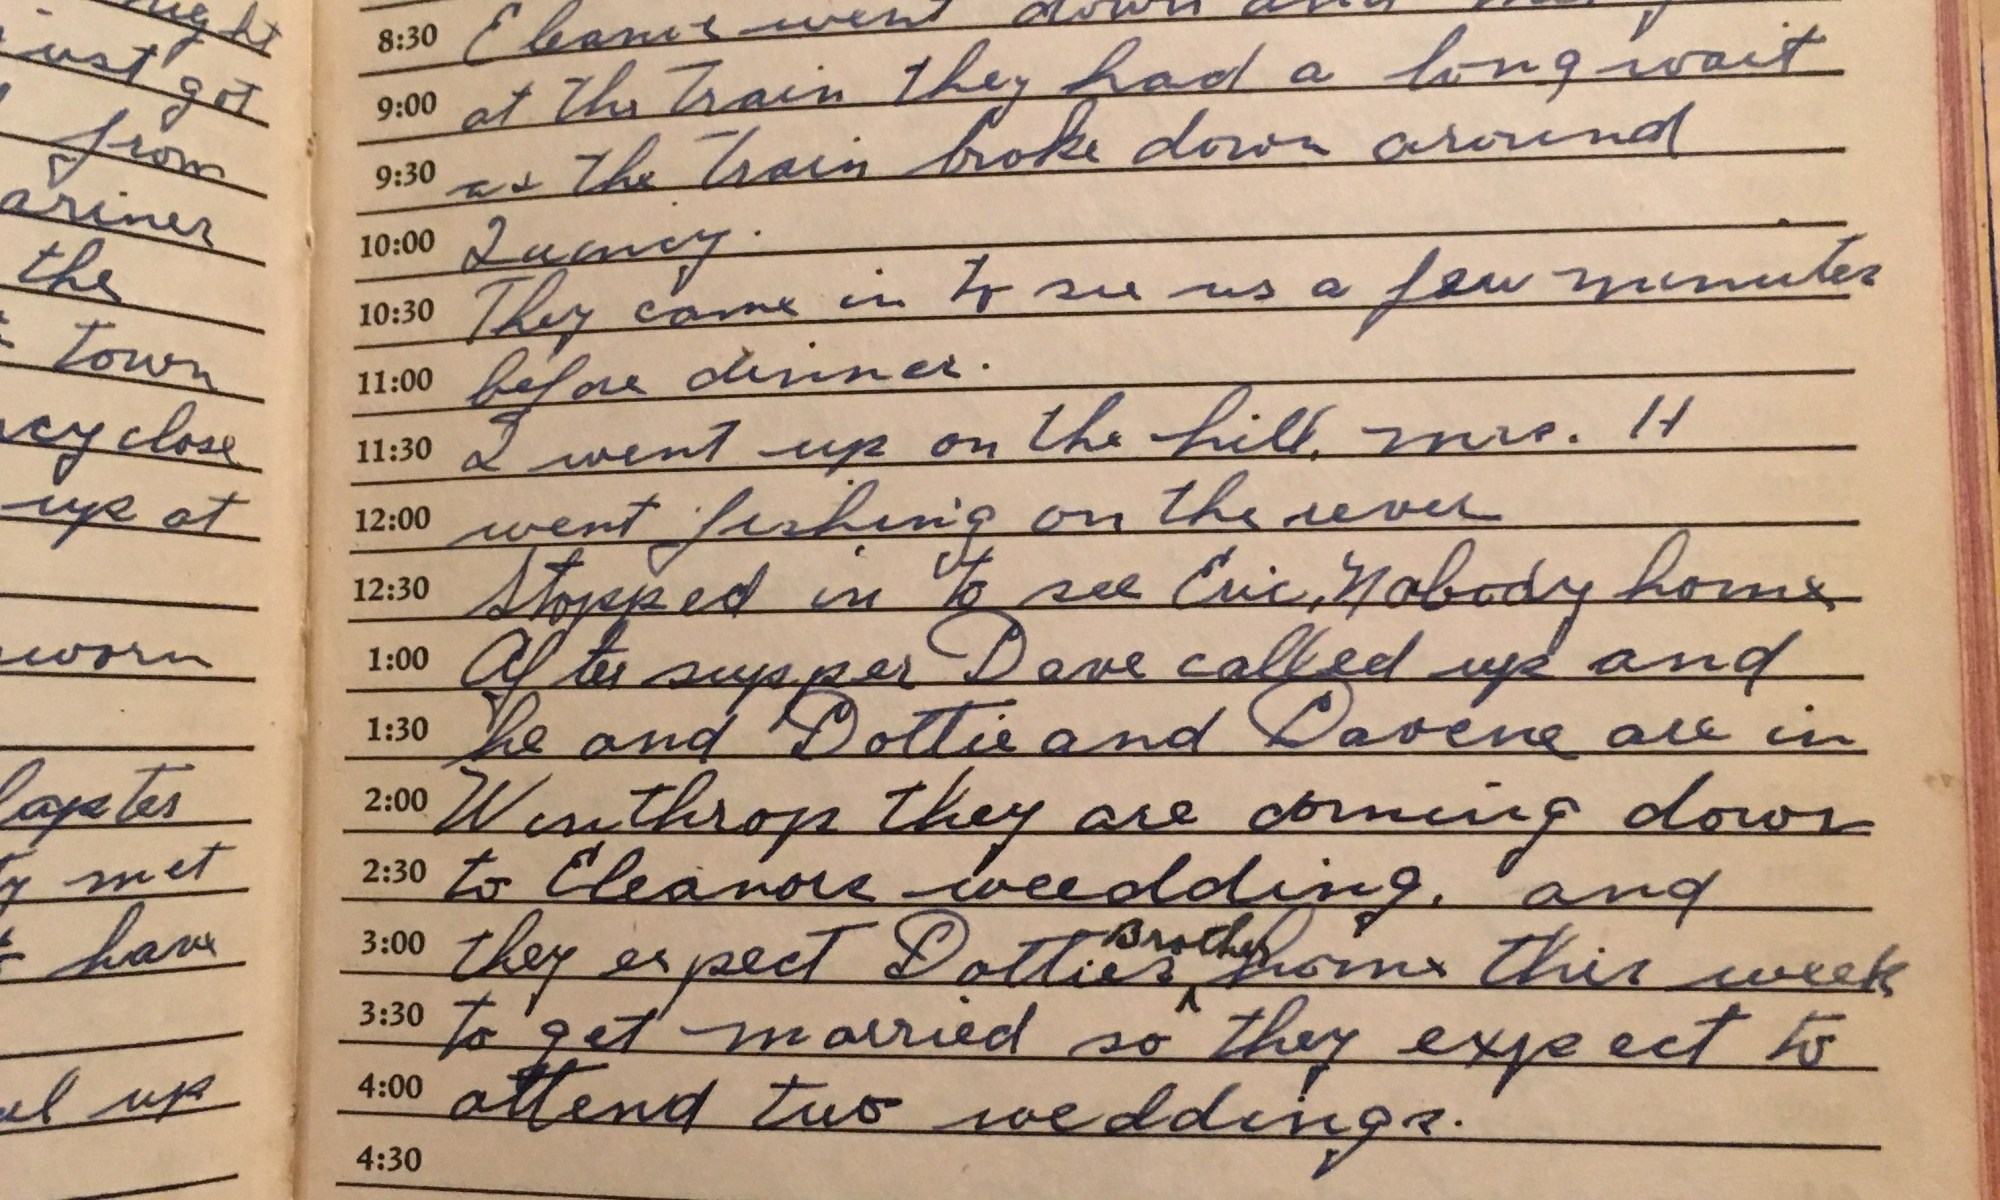 just got
from
ariner
the
town
cy close
up at
worn
met
have
up
8:30 Eleanor went down and
9:00 at the train they had a long wait
9:30 as the train broke down around
10:00 Quincy.
10:30 They came in to see us a few minutes
11:00 before dinner.
11:30 I went up on the hill, mrs. H
12:00 went fishing on the river
12:30 Stopped in to see Eric, Nobody home
1:00 After supper Dave called up and
1:30 he and Dottie and Davene are in
2:00 Winthrop they are coming down
2:30 to Eleanors weedding. and
3:00 they expect Dotties Brother home this week
3:30 to get married so they expect to
4:00 attend two weddings.
4:30